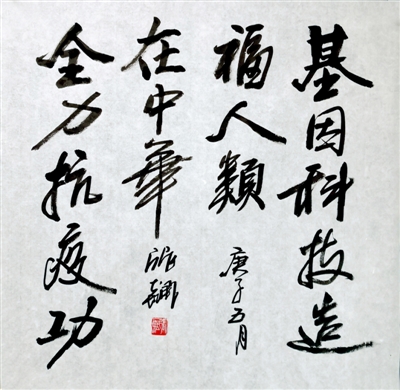 基因科技造
福人類
庚子五月
全力抗疫功
在中華